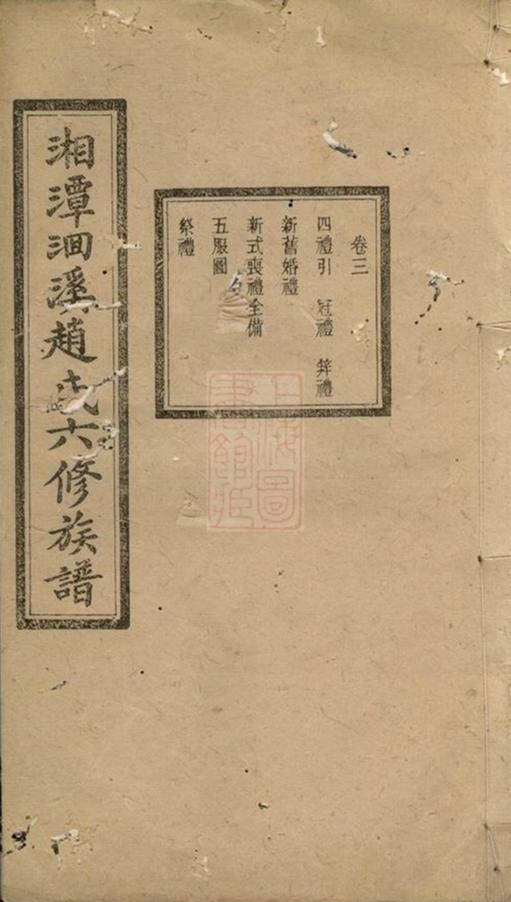 湘潭洄溪趙氏六修族譜
卷三
四禮引 冠禮 笄禮
新舊婚禮
新式喪禮全備
五服圖
祭禮
上海圖
書館藏